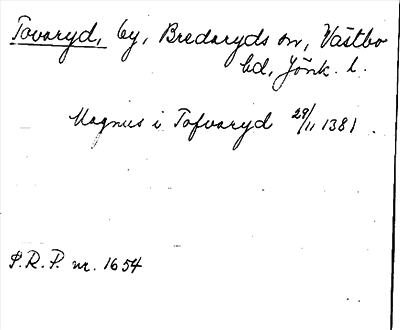 Tovaryd, by, Bredaryds sn, Västbo
hd, Jönk. l.
Magnus i Tofvaryd 29/11 1381.
S.R.P. nr. 1654